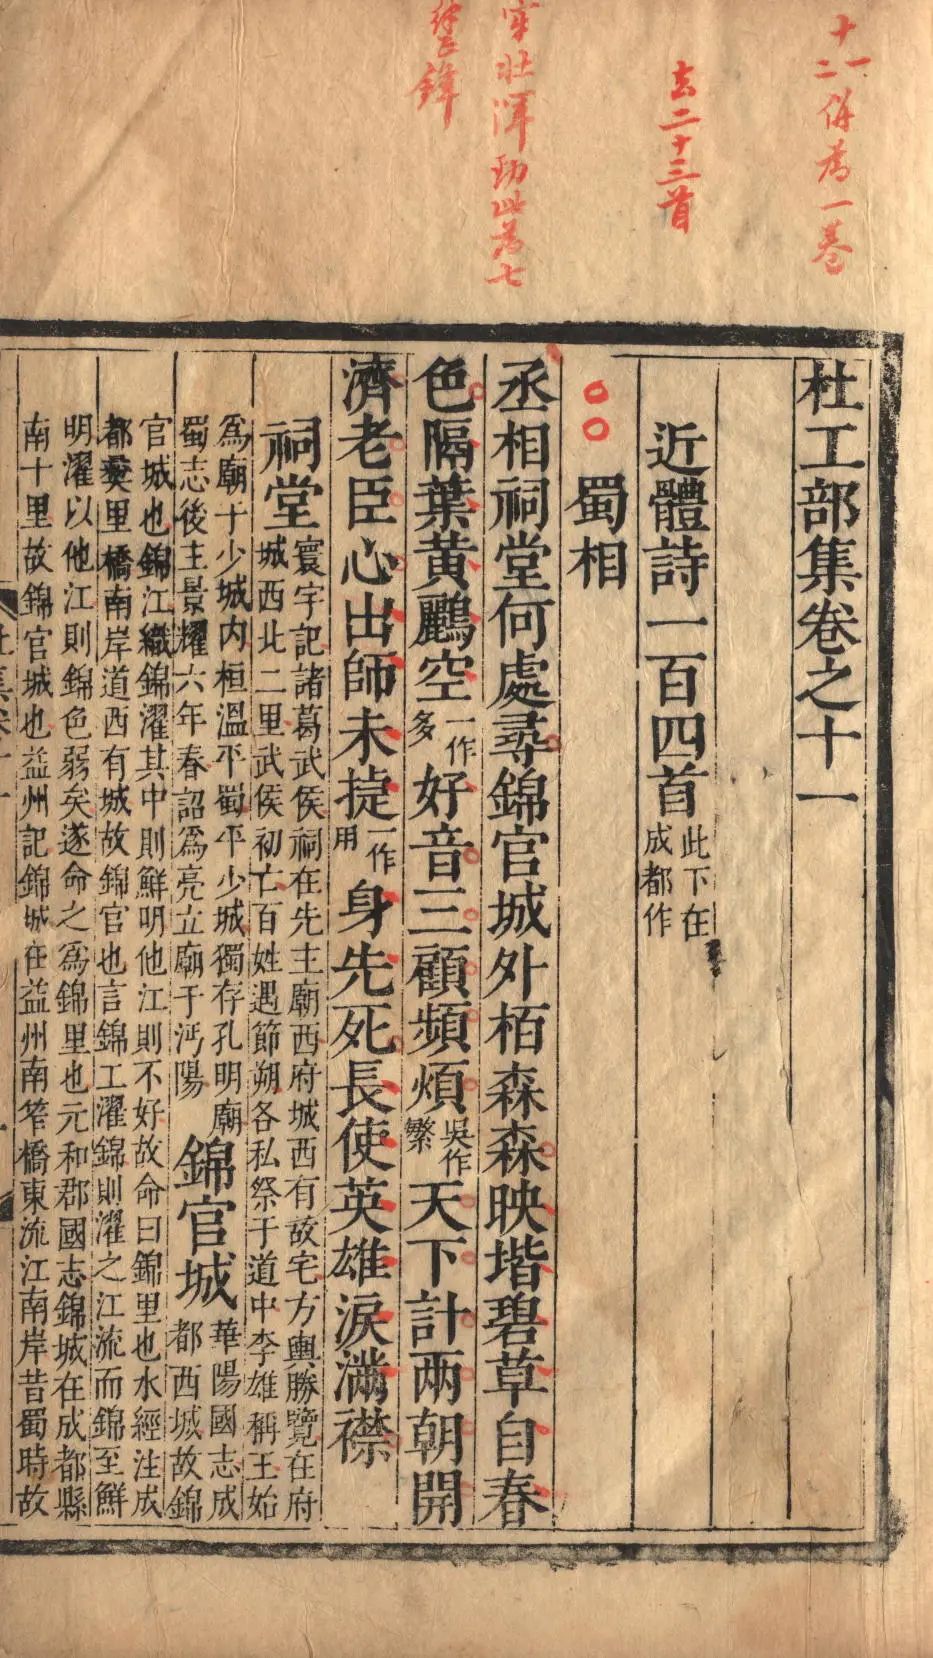 十一
二併為一卷
去二十三首
壯渾勁此為七
鋒
杜工部集卷之十一
近體詩一百四首此下在成都作
蜀相
丞相祠堂何處尋錦官城外栢森森映堦碧草自春
色隔葉黃鸝空一作多好音三顧頻煩吳作繁天下計兩朝開
濟老臣心出師未捷一作用身先死長使英雄淚滿襟
祠堂寰宇記諸葛武侯祠在先主廟西府城西有故宅方輿勝覽在府
城西北二里武侯初亡百姓遇節朔各私祭于道中李雄稱王始
爲廟于少城內桓溫平蜀平少城獨存孔明廟
蜀志後主景耀六年春詔爲亮立廟于沔陽
錦官城華陽國志成
都西城故錦
官城也錦江織錦濯其中則鮮明他江則不好故命曰錦里也水經注成
都夷里橋南岸道西有城故錦官也言錦工濯錦則濯之江流而錦至鮮
明濯以他江則錦色弱矣遂命之爲錦里也元和郡國志錦城在成都縣
南十里故錦官城也益州記錦城在益州南笮橋東流江南岸昔蜀時故